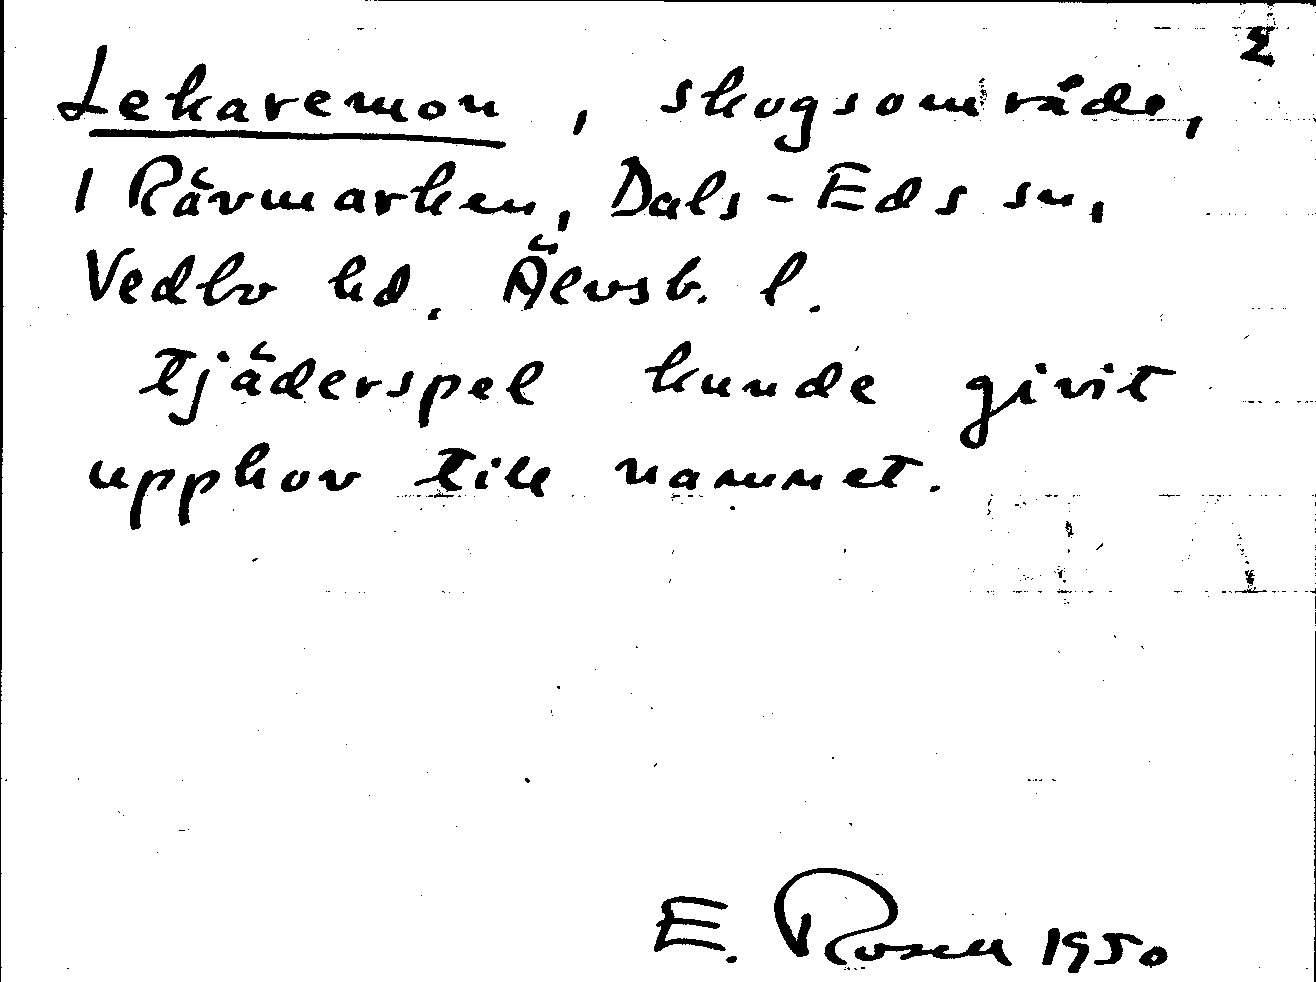 2
Lekaremon, skogsområde,
i Rävmarken, Dals-Eds sn,
Vedbo hd. Älvsb. l.
Tjäderspel kunde givit
upphov till namnet.
E. Rosell 1950